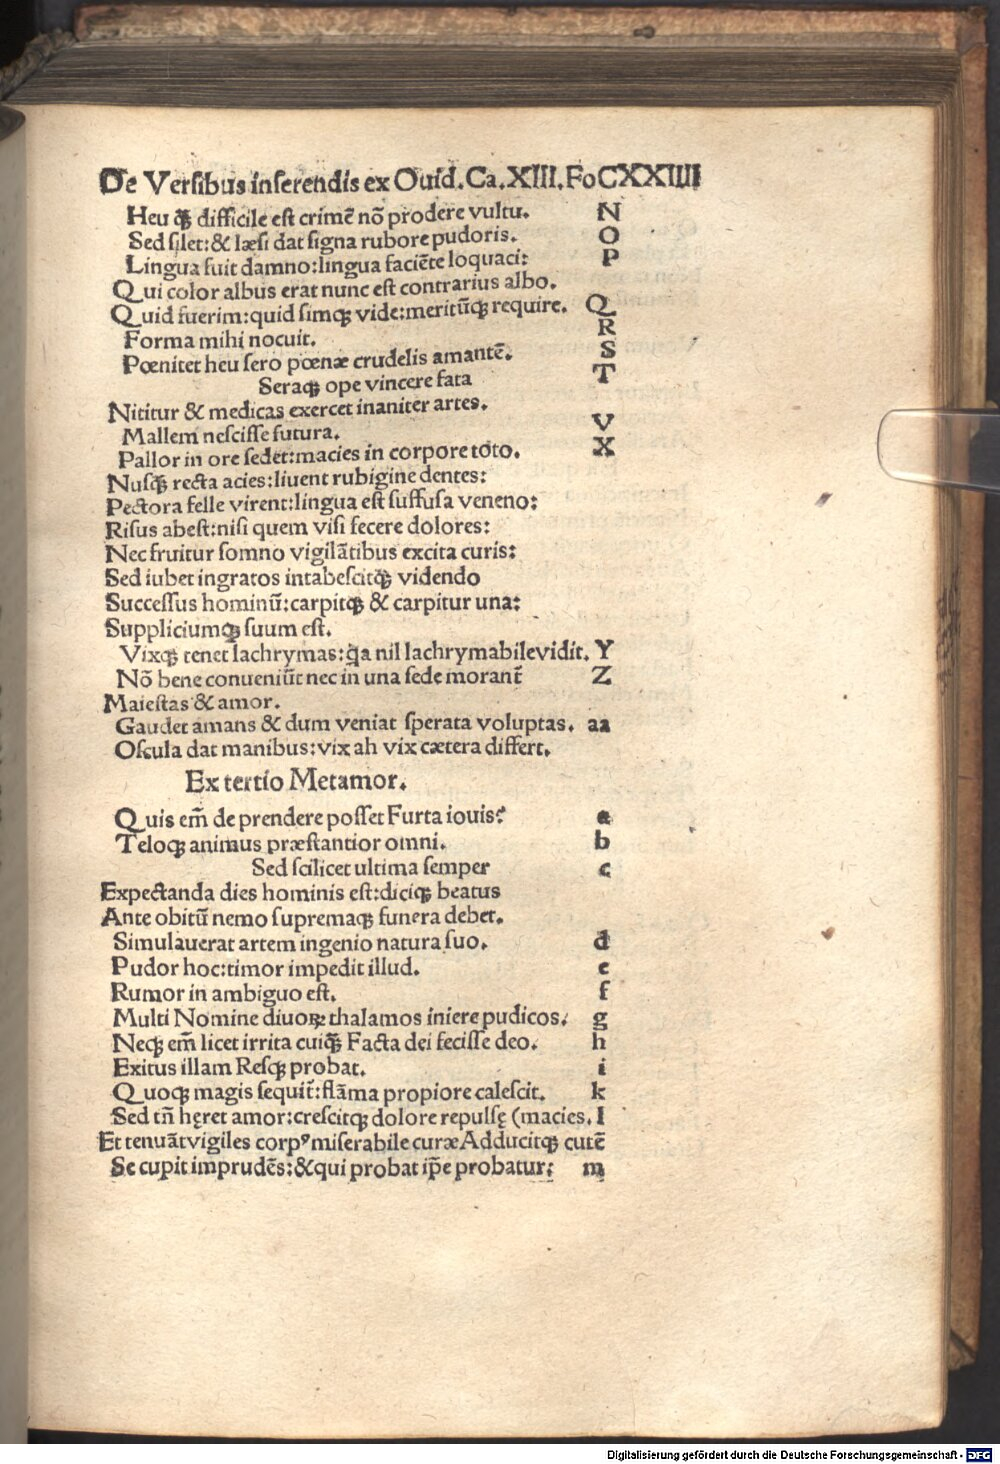 De Versibus inserendis ex Ouid. Ca. XIII. Fo CXXIIII
Heu ꝙ̃ difficile est crimē nō prodere vultu. N
Sed silet: & læsi dat signa rubore pudoris. O
Lingua fuit damno: lingua faciēte loquaci: P
Qui color albus erat nunc est contrarius albo.
Quid fuerim: quid simqꝫ vide: meritūqꝫ require. Q
Forma mihi nocuit. R
Pœnitet heu sero pœnæ crudelis amantē. S
Seraqꝫ ope vincere fata T
Nititur & medicas exercet inaniter artes.
Mallem nescisse futura. V
Pallor in ore sedet: macies in corpore toto. X
Nusꝙ̃ recta acies: liuent rubigine dentes:
Pectora felle virent: lingua est suffusa veneno:
Risus abest: nisi quem visi fecere dolores:
Nec fruitur somno vigilātibus excita curis:
Sed iubet ingratos intabescitqꝫ videndo
Successus hominū: carpitqꝫ & carpitur una:
Suppliciumqꝫ suum est.
Vixqꝫ tenet lachrymas: q̃a nil lachrymabile vidit. Y
Nō bene conueniūt nec in una sede morant̃ Z
Maiestas & amor.
Gaudet amans & dum veniat sperata voluptas. aa
Oscula dat manibus: vix ah vix cætera differt.
Ex tertio Metamor.
Quis em̃ de prendere posset Furta iouis? a
Teloqꝫ animus præstantior omni. b
Sed scilicet ultima semper c
Expectanda dies hominis est: diciqꝫ beatus
Ante obitū nemo supremaqꝫ funera debet.
Simulauerat artem ingenio natura suo. d
Pudor hoc: timor impedit illud. e
Rumor in ambiguo est. f
Multi Nomine diuoꝝ thalamos iniere pudicos. g
Neqꝫ em̃ licet irrita cuiꝙ̃ Facta dei fecisse deo. h
Exitus illam Resqꝫ probat. i
Quoqꝫ magis sequit̃: flāma propiore calescit. k
Sed tñ hęret amor: crescitqꝫ dolore repulsę (macies. l
Et tenuāt vigiles corpꝰ miserabile curæ Adducitqꝫ cutē
Se cupit imprudēs: & qui probat ip̃e probatur: m
Digitalisierung gefördert durch die Deutsche Forschungsgemeinschaft - DFG